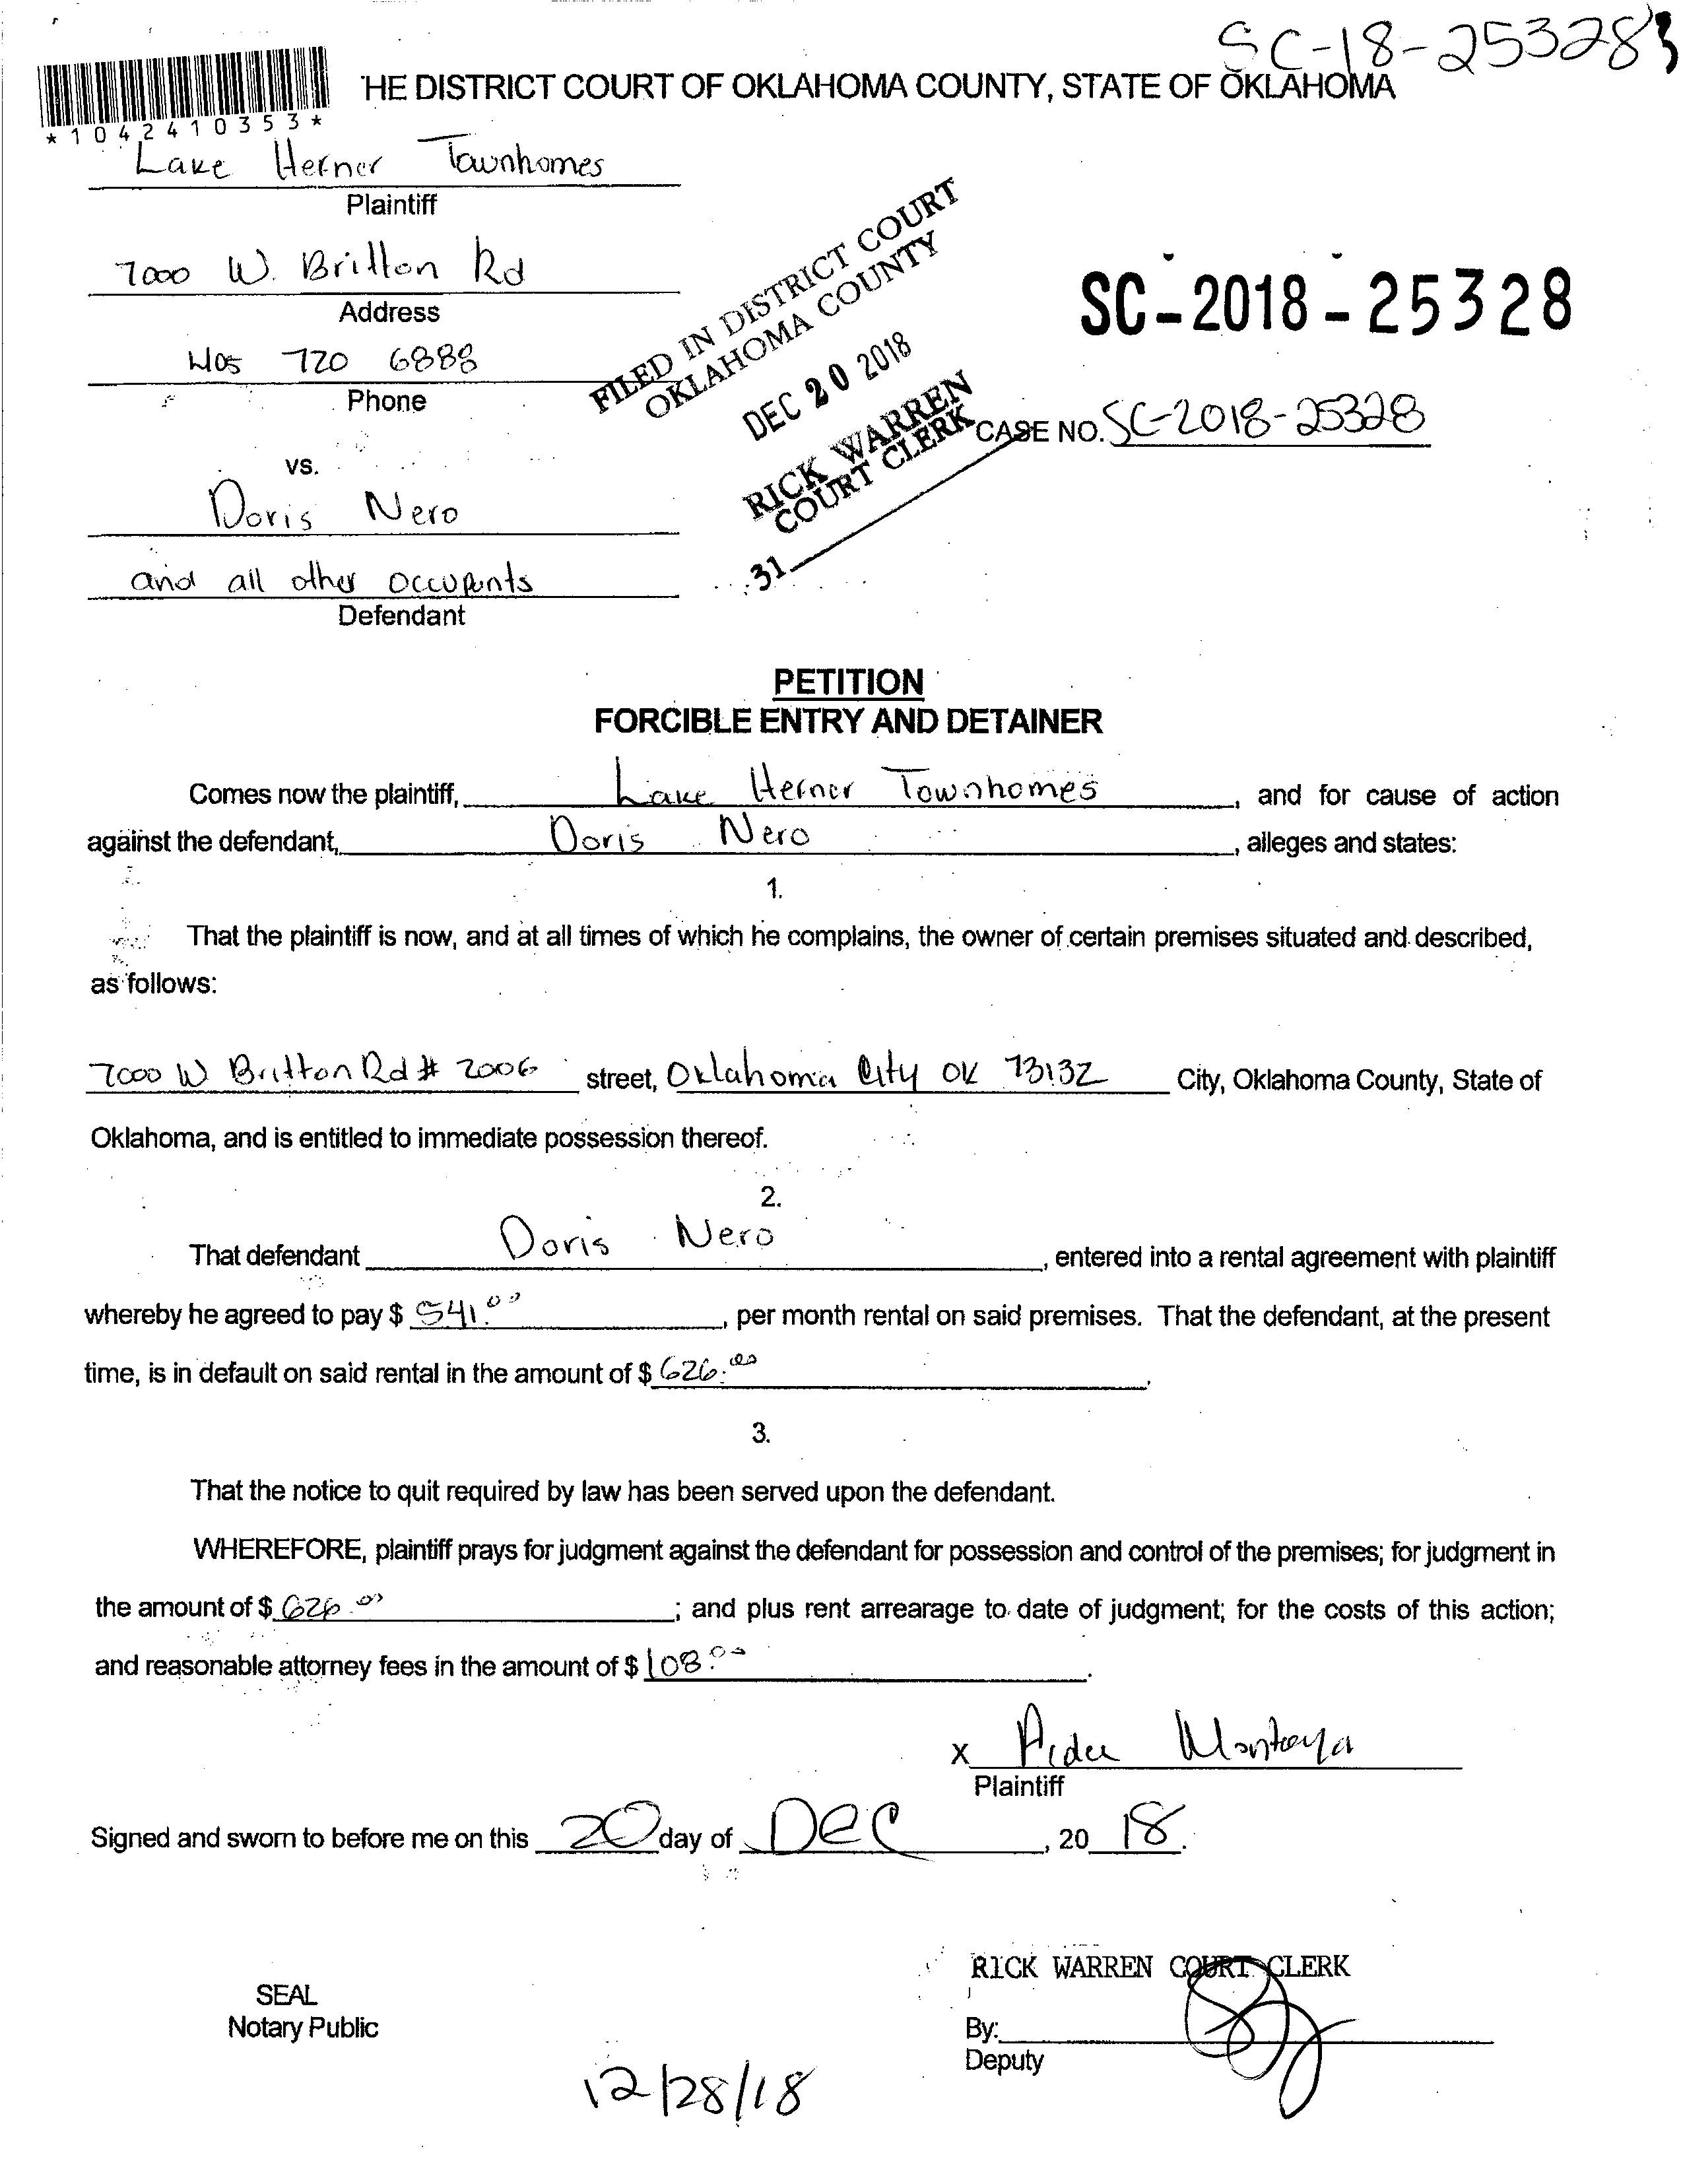 SC-18-25328
*1042410353*
'HE DISTRICT COURT OF OKLAHOMA COUNTY, STATE OF OKLAHOMA
Lake Hefner Townhomes
Plaintiff
7000 W. Britton Rd
Address
405 720 6888
Phone
FILED IN DISTRICT COURT
OKLAHOMA COUNTY
DEC 20 2018
RICK WARREN
COURT CLERK
31
SC-2018-25328
CASE NO. SC-2018-25328
vs.
Doris Nero
and all other occupants
Defendant
PETITION
FORCIBLE ENTRY AND DETAINER
Comes now the plaintiff, Lake Hefner Townhomes, and for cause of action
against the defendant, Doris Nero, alleges and states:
1.
That the plaintiff is now, and at all times of which he complains, the owner of certain premises situated and described,
as follows:
7000 W Britton Rd # 2006 street, Oklahoma City OK 73132 City, Oklahoma County, State of
Oklahoma, and is entitled to immediate possession thereof.
2.
That defendant Doris Nero, entered into a rental agreement with plaintiff
whereby he agreed to pay $ 541.00, per month rental on said premises. That the defendant, at the present
time, is in default on said rental in the amount of $ 626.00.
3.
That the notice to quit required by law has been served upon the defendant.
WHEREFORE, plaintiff prays for judgment against the defendant for possession and control of the premises; for judgment in
the amount of $ 626.00; and plus rent arrearage to date of judgment; for the costs of this action;
and reasonable attorney fees in the amount of $ 108.00.
X Aidee Montoya
Plaintiff
Signed and sworn to before me on this 20 day of DEC, 20 18.
RICK WARREN COURT CLERK
SEAL
Notary Public
By:
Deputy
12/28/18